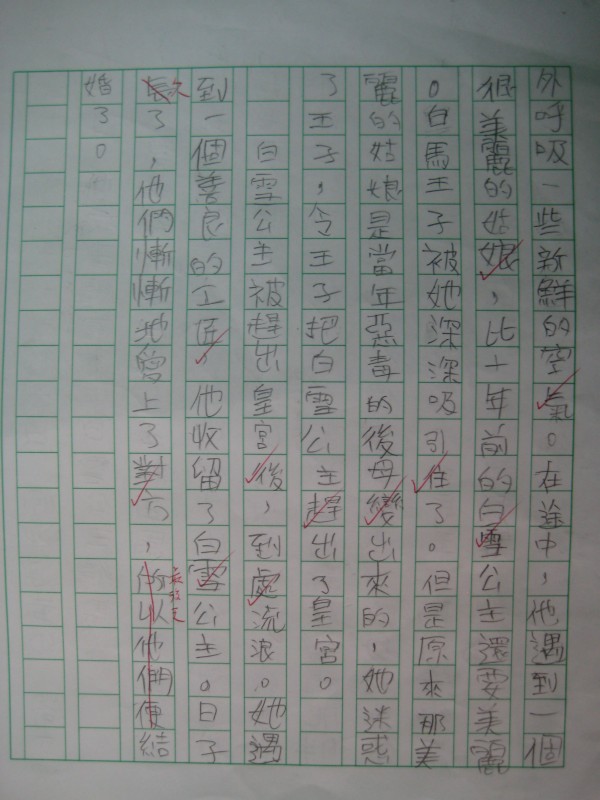 外呼吸一些新鮮的空氣。在途中，他遇到一個
很美麗的姑娘，比十年前的白雪公主還要美麗
。白馬王子被她深深吸引住了。但是原來那美
麗的姑娘是當年惡毒的後母變出來的，她迷惑
了王子，令王子把白雪公主趕出了皇宮。
白雪公主被趕出皇宮後，到處流浪。她遇
到一個善良的工匠，他收留了白雪公主。日子
長久了，他們慚慚地愛上了對方，的以他們便結
最後
婚了。